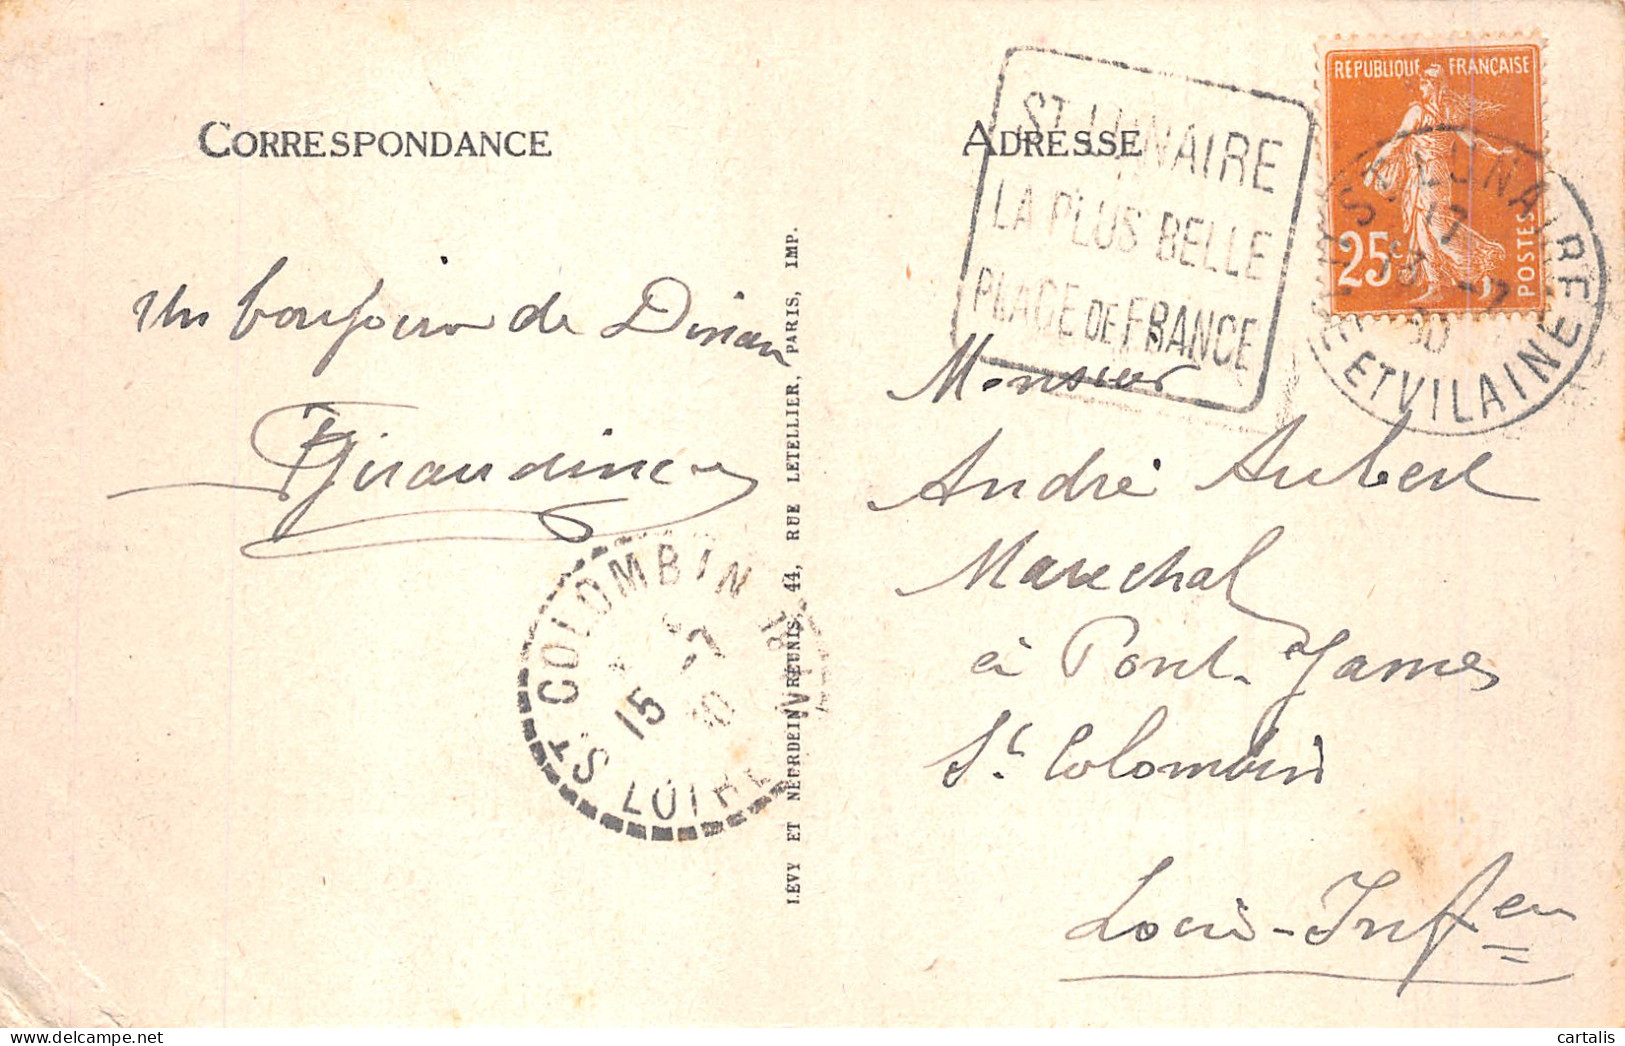 CORRESPONDANCE
Un bonjour de Dinan
ADRESSE
ST LUNAIRE
LA PLUS BELLE
PLAGE DE FRANCE
REPUBLIQUE FRANÇAISE
25c
POSTES
ST LUNAIRE
17
13 -7
30
ET VILAINE
Monsieur
André Aubert
Marechal
à Pont-James
St Colombin
Loire-Infre
ST COLOMBIN
15 -7
30
LOIRE INF
LÉVY ET NEURDEIN RÉUNIS, 44, RUE LETELLIER, PARIS, IMP.
cartalis